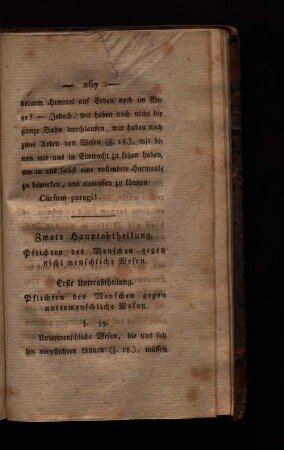 — 267 —
deinem Himmel auf Erden noch im We-
ge? — Jedoch, wir haben noch nicht die
ganze Bahn durchlaufen, wir haben noch
zwei Arten von Wesen (§. 18), mit de-
nen wir uns in Eintracht zu setzen haben,
um in uns selbst eine vollendete Harmonie
zu bewirken, und ausrufen zu können:
Cursum peregi!
Zwote Hauptabtheilung.
Pflichten des Menschen gegen
nicht menschliche Wesen.
Erste Unterabtheilung.
Pflichten des Menschen gegen
untermenschliche Wesen.
§. 59.
Untermenschliche Wesen, die uns sol-
len verpflichten können (§. 18), müssen